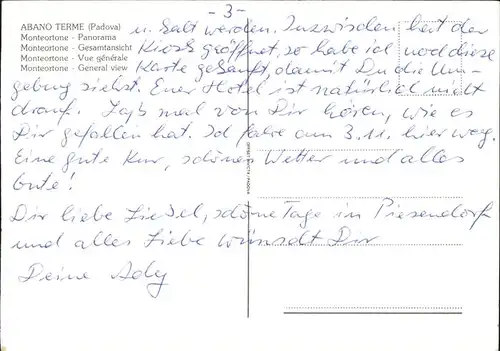 - 3 -
ABANO TERME (Padova)
Monteortone - Panorama
Monteortone - Gesamtansicht
Monteortone - Vue générale
Monteortone - General view
u. Salt werden. Inzwischen hat der
Kiosk geöffnet, so habe ich noch diese
Karte gekauft, damit Du die Um-
gebung siehst. Euer Hotel ist natürlich nicht
drauf. Laß mal von Dir hören, wie es
Dir gefallen hat. Ich fahre am 3.11. hier weg.
Eine gute Kur, schönes Wetter und alles
Gute!
Dir liebe Liesel, schöne Tage in Piesendorf
und alles Liebe wünscht Dir
Deine Ady